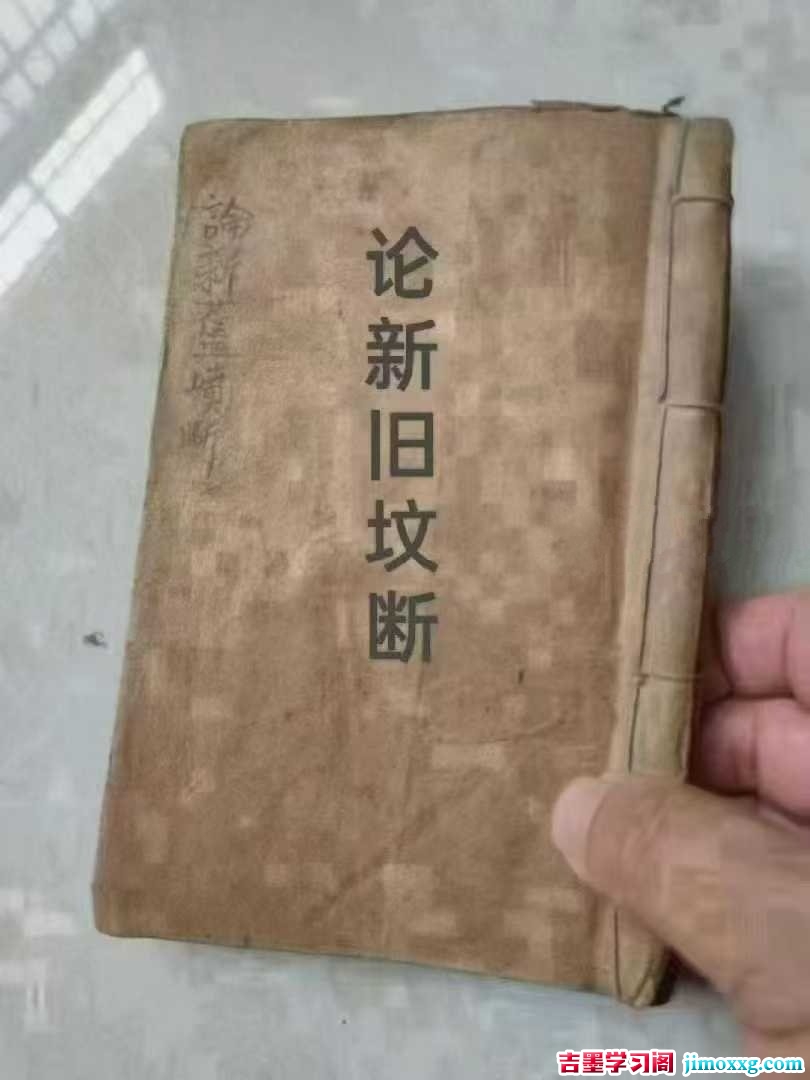 论新旧坟断
論新舊墳断
吉墨学习阁 jimoxxg.com